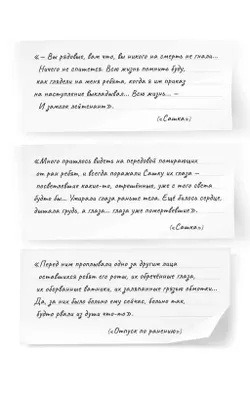 «— Вы рядовые, вам что, вы никого на смерть не гнали...
Ничего не спишется. Всю жизнь помнить буду,
как глядели на меня ребята, когда я им приказ
на наступление выкладывал... Всю жизнь... –
И замолк лейтенант».
(«Сашка»)
«Много пришлось видеть на передовой помирающих
от ран ребят, и всегда поражали Сашку их глаза –
посветлевшие какие-то, отрешённые, уже с того света
будто бы... Умирали глаза раньше тела. Ещё билось сердце,
дышала грудь, а глаза... глаза уже помертвевшие».
(«Сашка»)
«Перед ним проплывали одно за другим лица
оставшихся ребят его роты, их обречённые глаза,
их оборванные ватники, их заляпанные грязью обмотки...
Да, за них было больно ему сейчас, больно так,
будто рвали из души что-то».
(«Отпуск по ранению»)